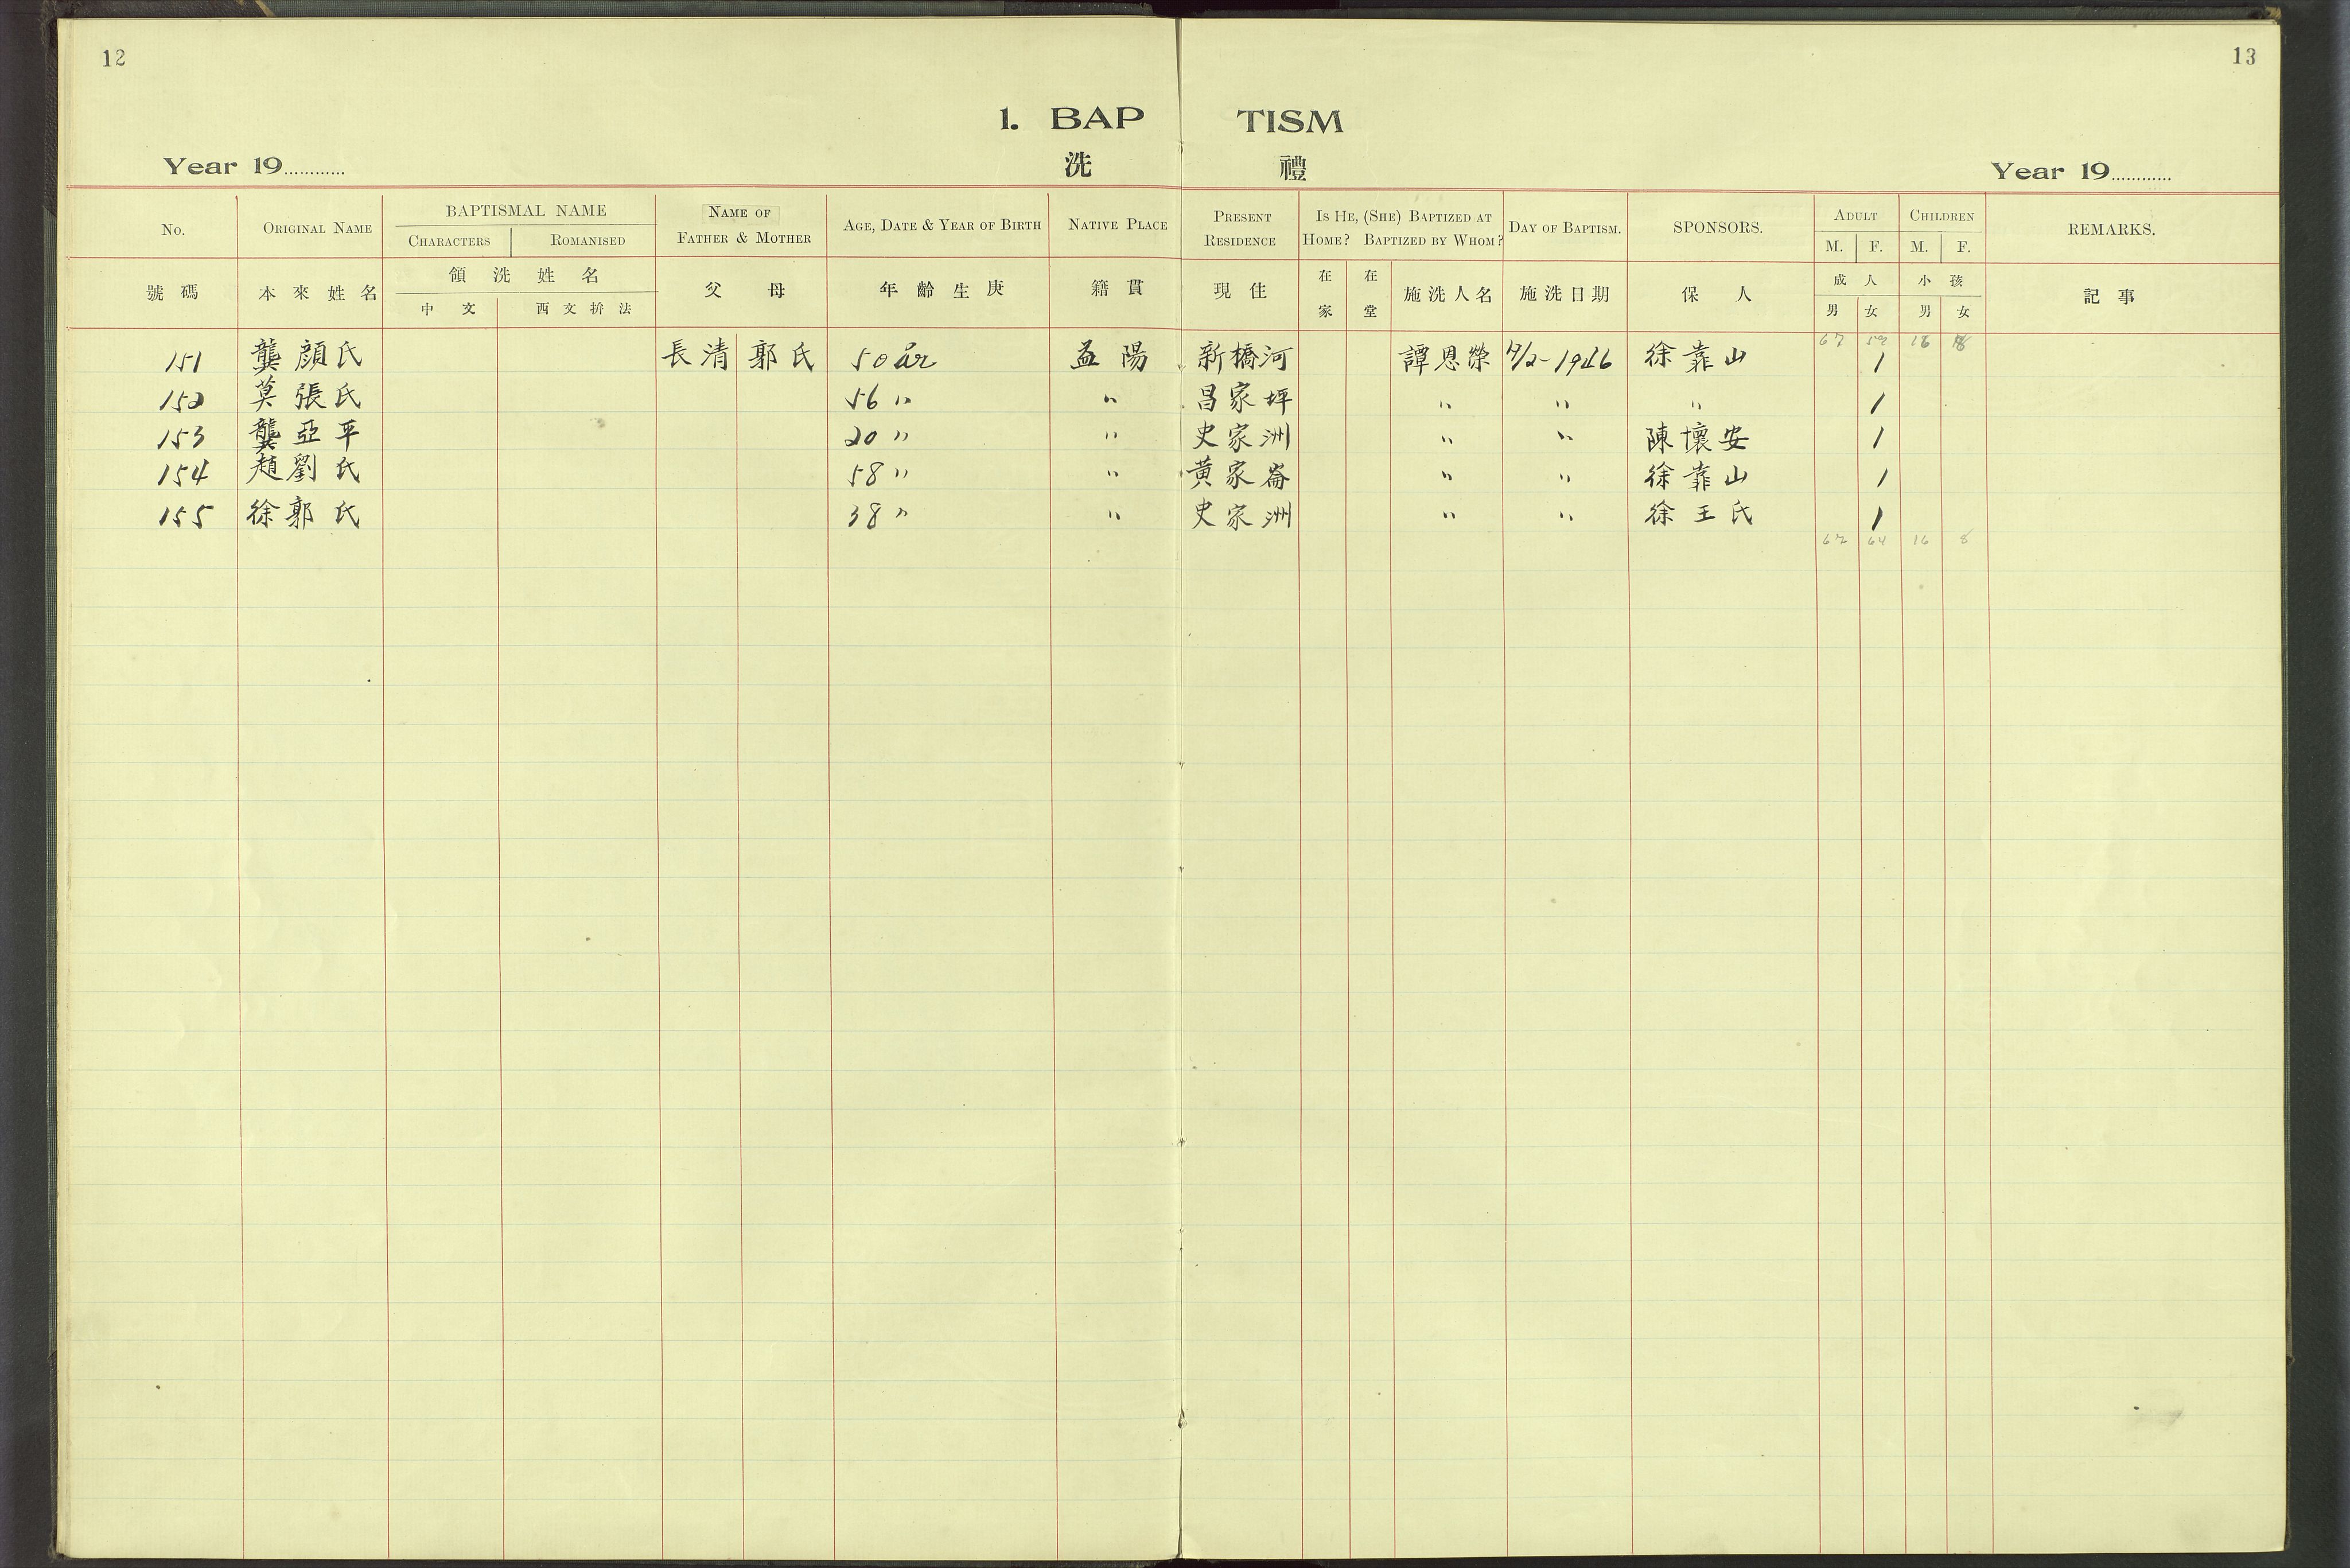 12
13
1. BAP TISM
洗 禮
Year 19............
Year 19............
No. ORIGINAL NAME BAPTISMAL NAME CHARACTERS ROMANISED NAME OF FATHER & MOTHER AGE, DATE & YEAR OF BIRTH NATIVE PLACE PRESENT RESIDENCE IS HE, (SHE) BAPTIZED AT HOME? BAPTIZED BY WHOM? DAY OF BAPTISM. SPONSORS. ADULT M. F. CHILDREN M. F. REMARKS.
號碼 本來姓名 領洗姓名 中文 西文拚法 父 母 年齡生庚 籍貫 現住 在家 在堂 施洗人名 施洗日期 保人 成人 男 女 小孩 男 女 記事
67 59 16 8
151 龔顏氏 長清 郭氏 50 år 益陽 新橋河 譚恩榮 /2-1946 徐靠山 1
152 莫張氏 56 " " 昌家坪 " " " 1
153 龔亞平 20 " " 史家洲 " " 陳壞安 1
154 趙劉氏 58 " " 黄家崙 " " 徐靠山 1
155 徐郭氏 38 " " 史家洲 " " 徐王氏 1
67 64 16 8